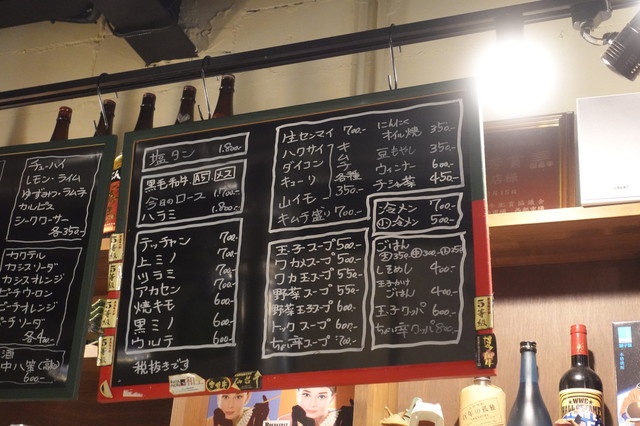 チューハイ
レモン・ライム
ゆずみつ・ラムネ
カルピス
シークワーサー
各350-
カクテル
カシスソーダ
カシスオレンジ
ピーチウーロン
ピーチオレンジ
ピーチソーダ
各4
酒
600-
塩タン 1.800-
黒毛和牛 A5 メス
今日のロース 1.700-
ハラミ 1.800-
テッチャン 700-
上ミノ 700-
ツラミ 700-
アカセン 700-
焼キモ 600-
黒ミノ 600-
ウルテ 600-
税抜きです
生センマイ 700-
ハクサイ
ダイコン
キューリ
キムチ各種
山イモ 350-
キムチ盛り 700-
にんにくオイル焼 350-
豆もやし 350-
ウィンナー 600-
チシャ菜 450-
冷メン 700-
小冷メン 500-
玉子スープ 500-
ワカメスープ 500-
ワカ玉スープ 550-
野菜スープ 550-
野菜玉子スープ 600-
トックスープ 600-
ちょい辛スープ 700-
ごはん
大350- 中300- 小250
400-
玉子かけ
ごはん 400-
玉子クッパ 600-
ちょい辛クッパ 800-
WWE